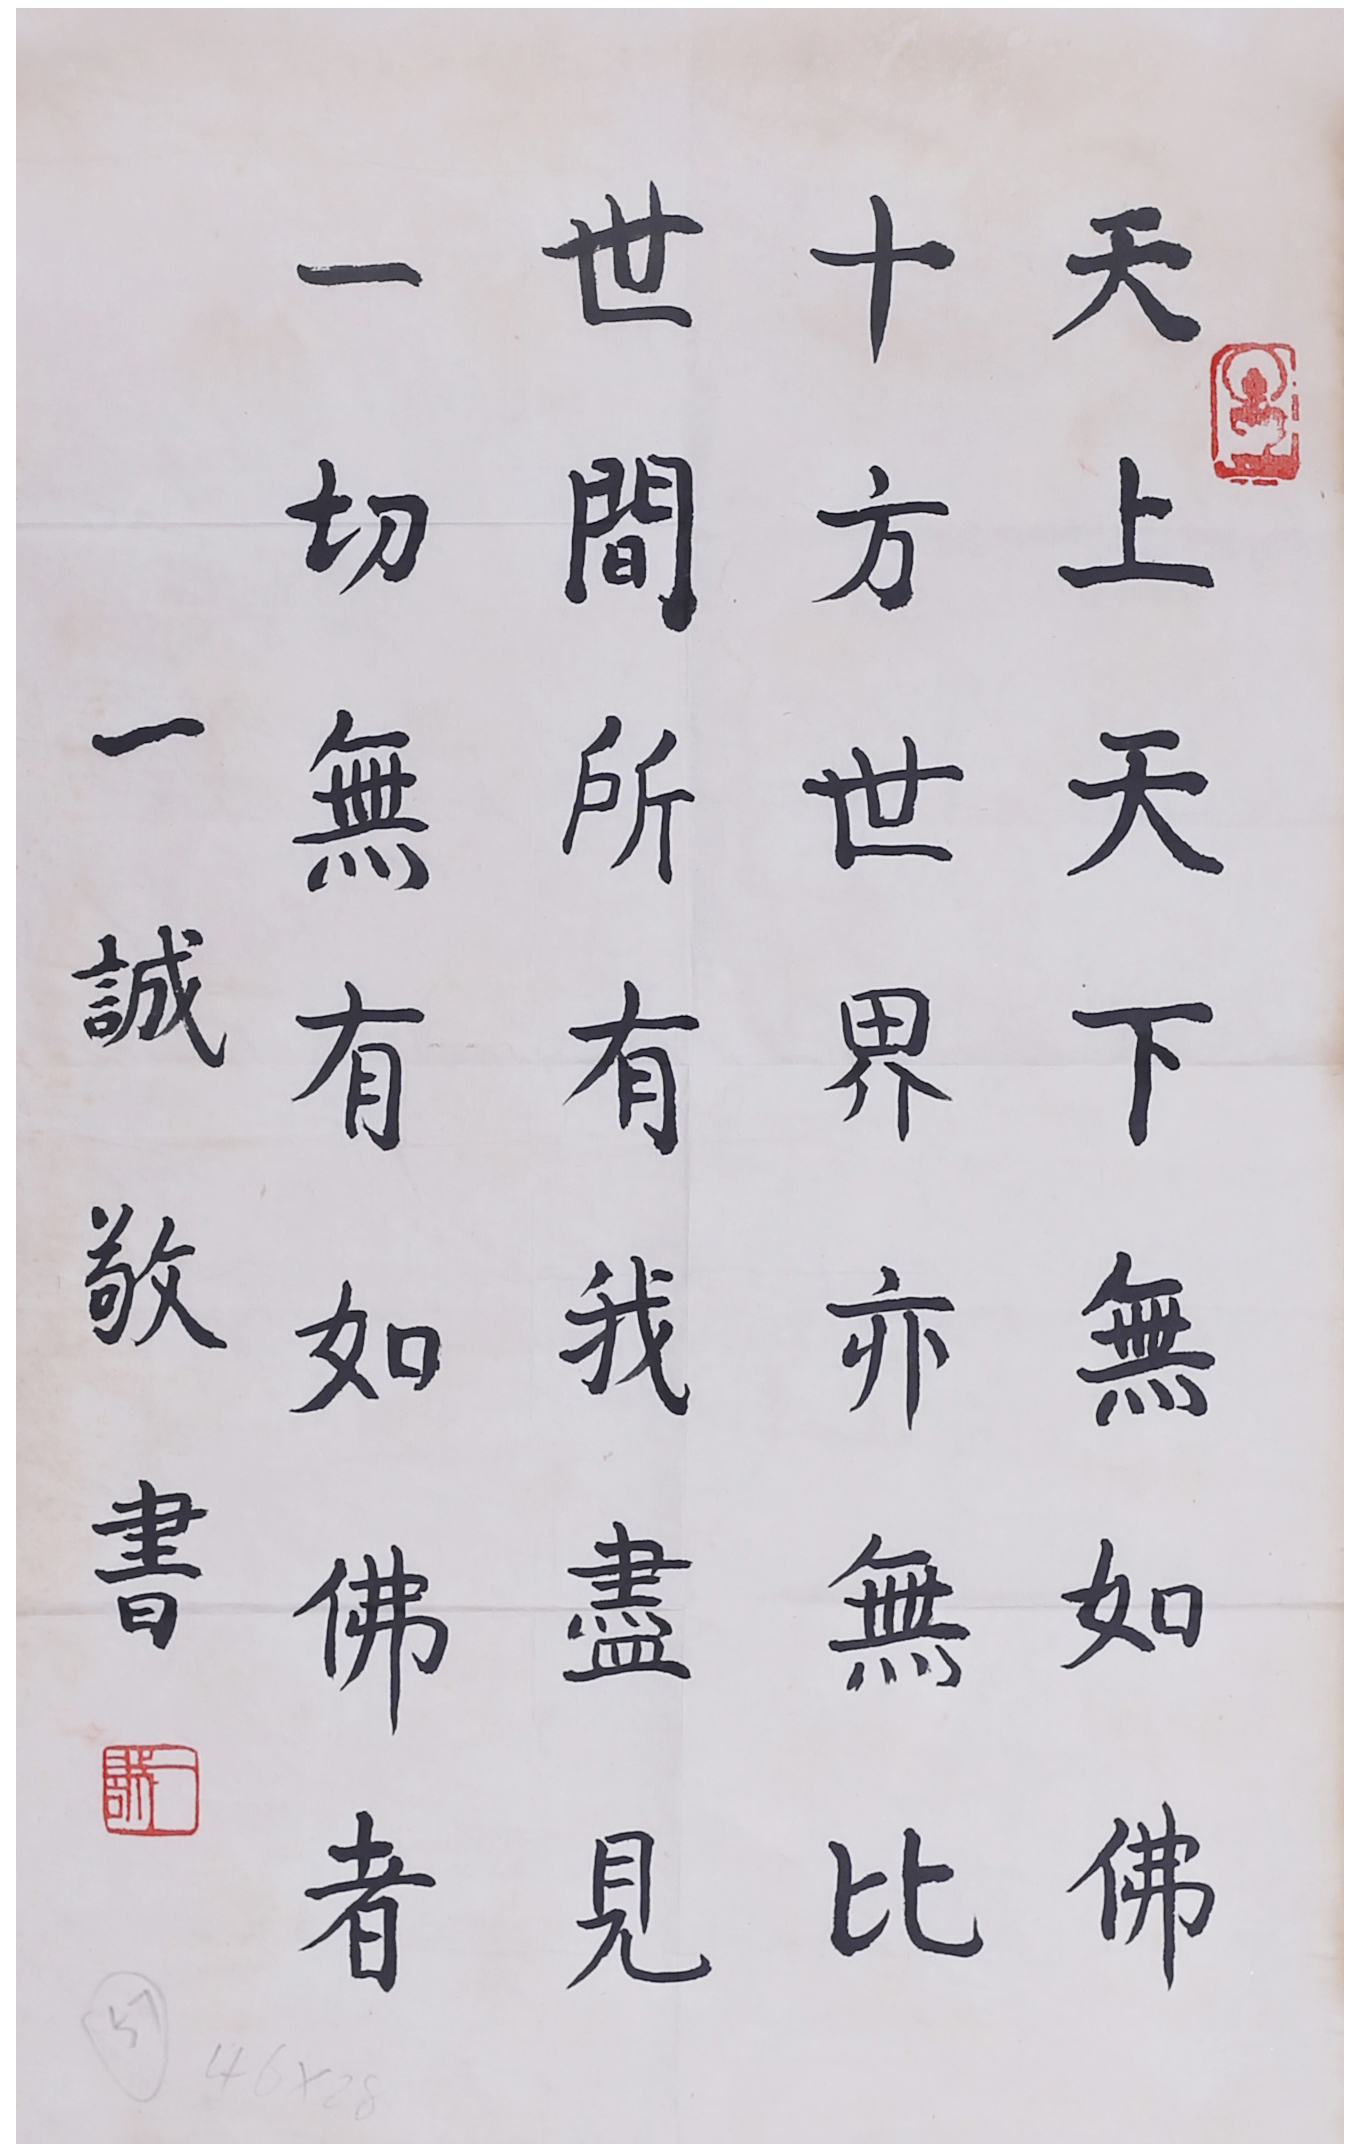 天上天下無如佛
十方世界亦無比
世間所有我盡見
一切無有如佛者
一誠敬書
一誠
46×28